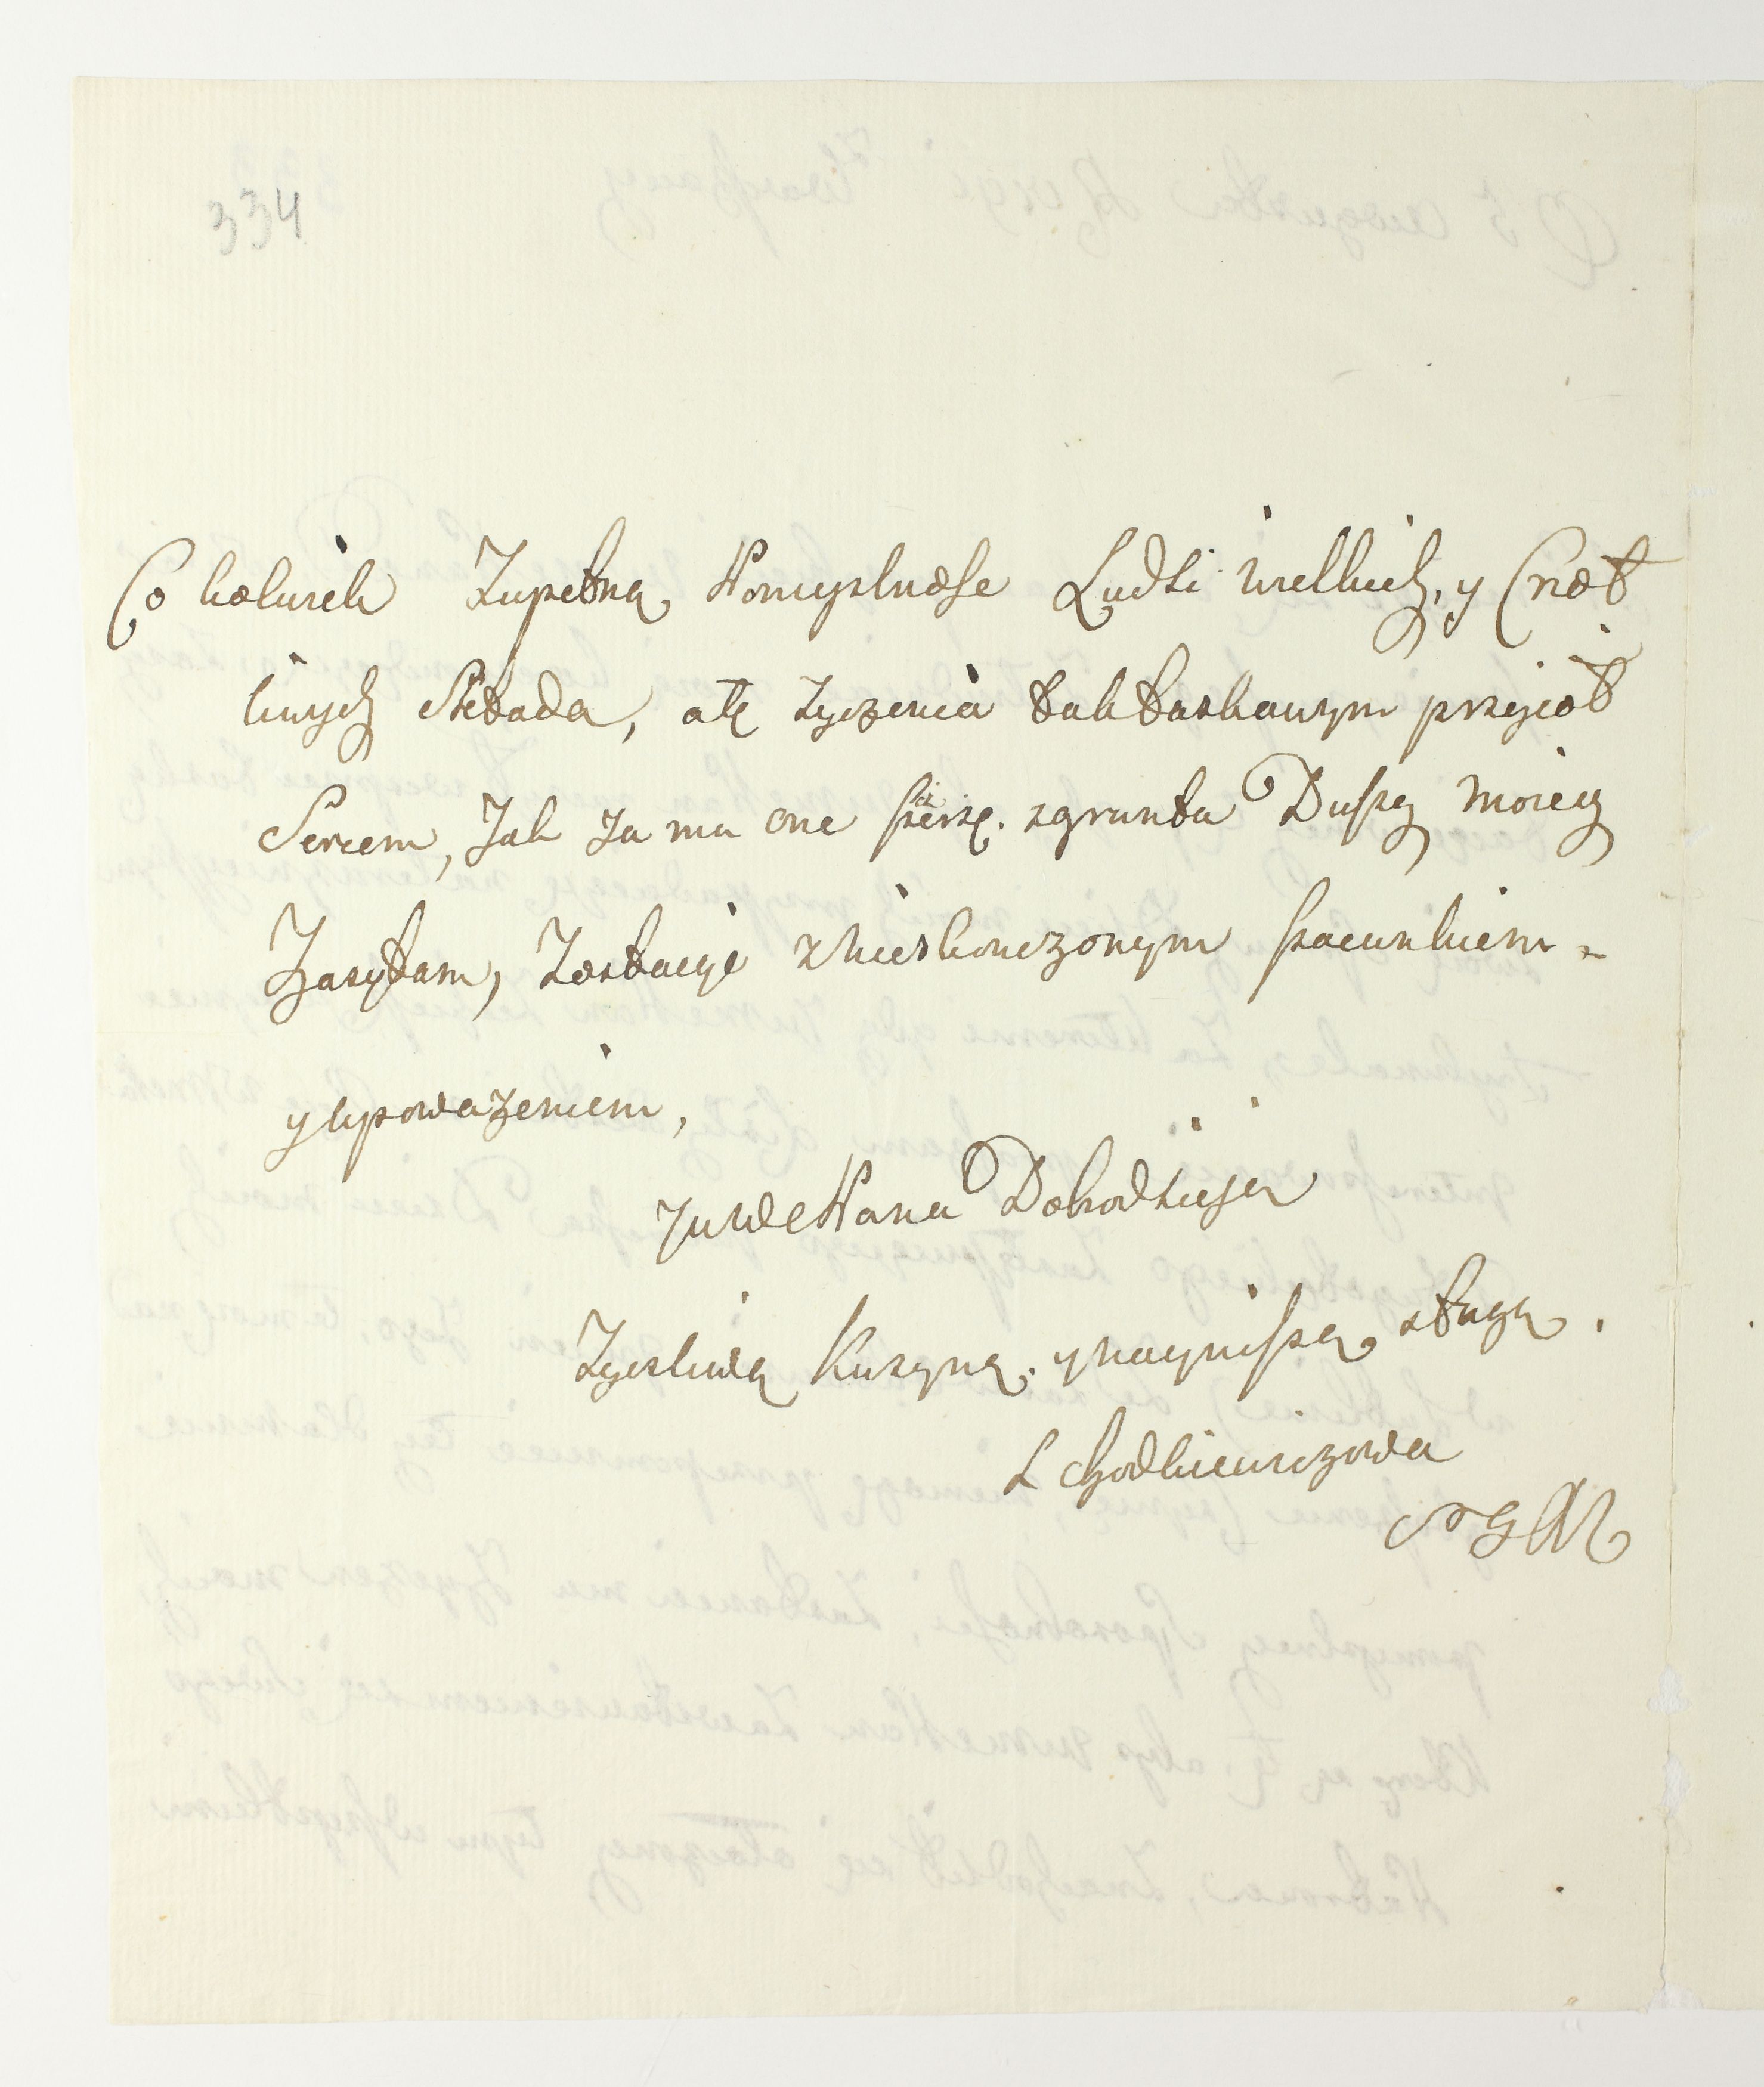 334
Co kolwiek Zupełną Pomyslnosc Ludzi wielkich, y Cnot
liwych składa, a te zyczenia tak łaskawym przyiąć
Sercem, Jak Ja mu one szczerze z gruntu Duszy moiey
Zasyłam, Zostaiąc z nieskonczonym szacunkiem
y uposazeniem,
JWW Pana Dobrodzieja
Zyczliwą Kuzyną y naynizszą sługą.
L Chodkiewiczowa